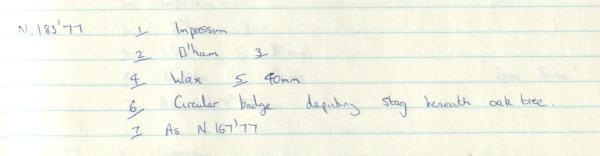 N.183'77 1 Impression
2 D'ham 3
4 Wax 5 40mm
6 Circular badge depicting stag beneath oak tree.
7 As N.167'77